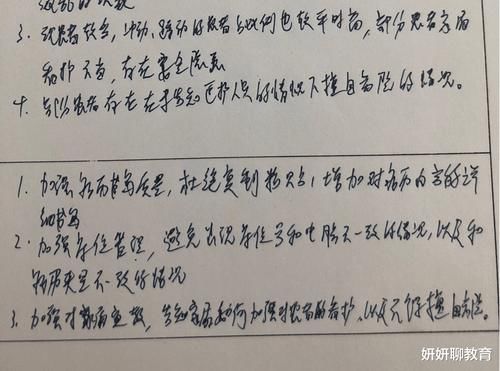 3. 观患较多，冲动、躁动的患者比例也较平时高，部分患者家属
看护不当，存在安全隐患
4. 部分患者存在在未告知医护人员的情况下擅自离院的情况。
1. 加强病历书写质量，杜绝复制粘贴，增加对病历内容的详
细书写
2. 加强床位管理，避免出现床位号和电脑不一致的情况，以及和
病历夹是不一致的情况
3. 加强对家属宣教，告知家属如何加强对患者的看护，以及不得擅自离院。
妍妍聊教育